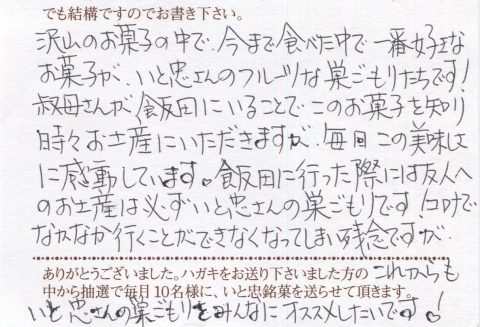 でも結構ですのでお書き下さい。
沢山のお菓子の中で、今まで食べた中で一番好きな
お菓子が、いと忠さんのフルーツな巣ごもりたちです!
叔母さんが飯田にいることでこのお菓子を知り
時々お土産にいただきますが、毎回この美味しさ
に感動しています♥飯田に行った際には友人へ
のお土産は必ずいと忠さんの巣ごもりです!コロナで
なかなか行くことができなくなってしまい残念ですが、
ありがとうございました。ハガキをお送り下さいました方の これからも
中から抽選で毎月10名様に、いと忠銘菓を送らせて頂きます。
いと忠さんの巣ごもりをみんなにオススメしたいです♥!